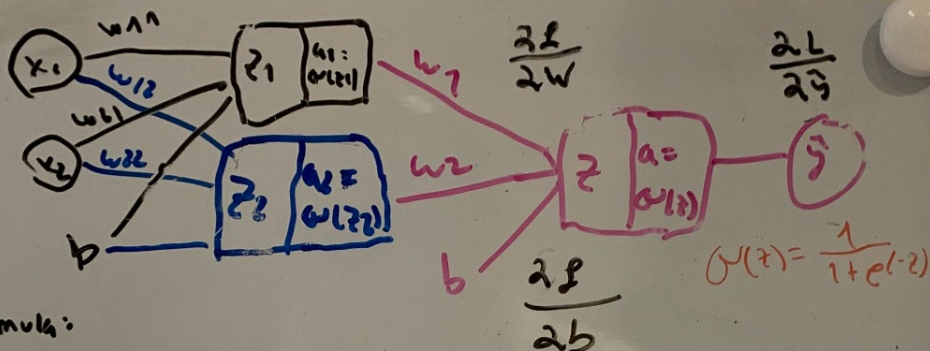 x1
w11
w12
wb1
x2
w22
b
z1
a1 =
σ(z1)
z2
a2 =
σ(z2)
w1
w2
b
∂L
∂w
∂L
∂b
z
a =
σ(z)
∂L
∂ŷ
ŷ
σ(z) = 1
1+e(-z)
mula: